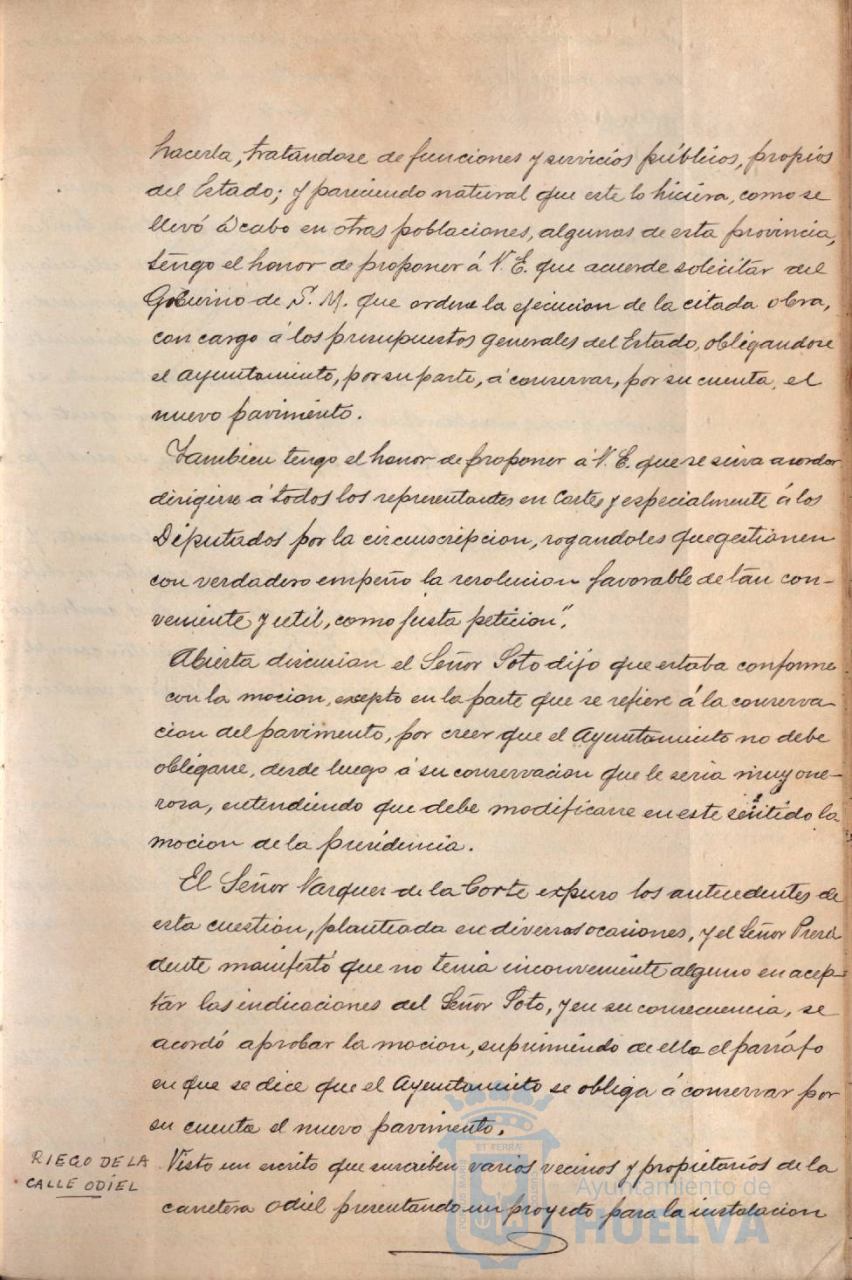 hacerla, tratándose de funciones y servicios públicos, propios
del Estado; y pareciendo natural que este lo hiciera, como se
llevó á cabo en otras poblaciones, algunas de esta provincia,
tengo el honor de proponer á V. E. que acuerde solicitar del
Gobierno de S. M. que ordene la ejecucion de la citada obra,
con cargo á los presupuestos generales del Estado, obligandose
el Ayuntamiento, por su parte, á conservar, por su cuenta, el
nuevo pavimento.
Tambien tengo el honor de proponer á V. E. que se sirva acordar
dirigirse á todos los representantes en Cortes y especialmente á los
Diputados por la circunscripcion, rogandoles que gestionen
con verdadero empeño la resolucion favorable de tan con-
veniente y util, como justa peticion".
Abierta discusion el Señor Soto dijo que estaba conforme
con la mocion, excepto en la parte que se refiere á la conserva-
cion del pavimento, por creer que el Ayuntamiento no debe
obligarse, desde luego á su conservacion que le seria muy one-
rosa, entendiendo que debe modificarse en este sentido la
mocion de la presidencia.
El Señor Vazquez de la Corte expuso los antecedentes de
esta cuestion, planteada en diversas ocasiones, y el Señor Presi-
dente manifestó que no tenia inconveniente alguno en acep-
tar las indicaciones del Señor Soto, y en su consecuencia, se
acordó aprobar la mocion, suprimiendo de ella el parráfo
en que se dice que el Ayuntamiento se obliga á conservar por
su cuenta el nuevo pavimento.
RIEGO DE LA
CALLE ODIEL
Visto un escrito que suscriben varios vecinos y propietarios de la
carretera Odiel presentando un proyecto para la instalacion
Ayuntamiento de
HUELVA